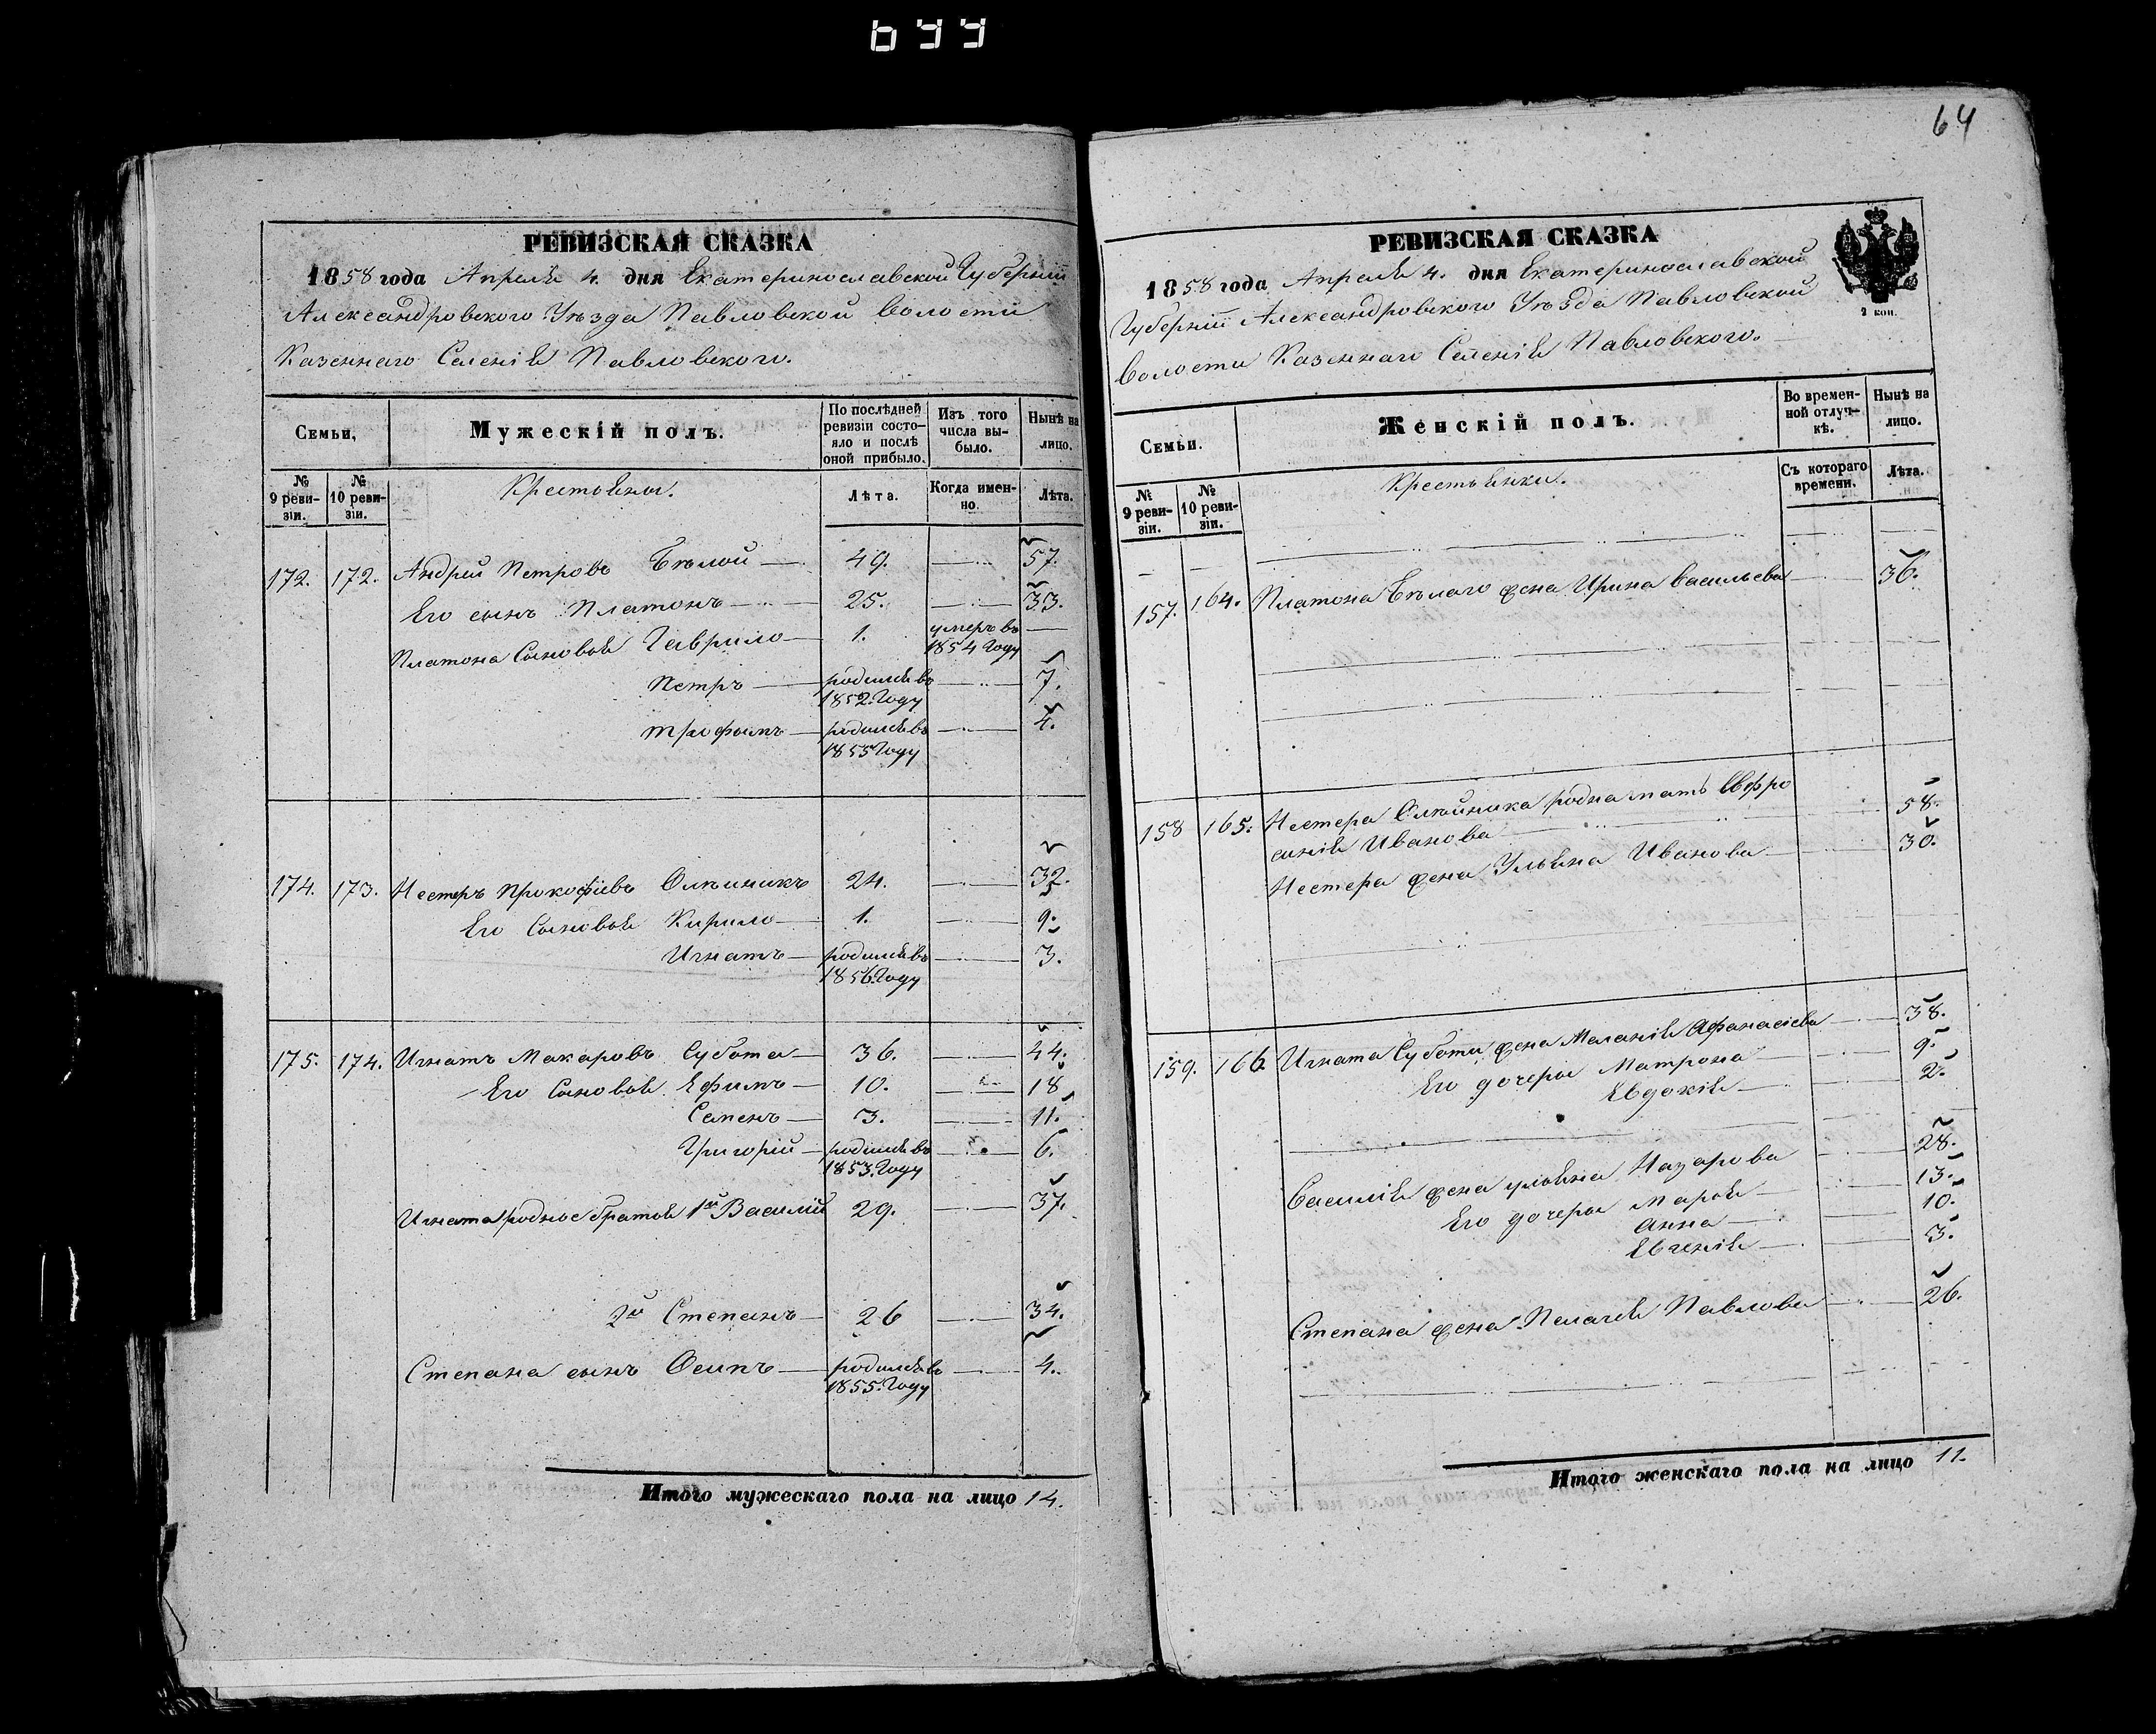 644
РЕВИЗСКАЯ СКАЗКА
1858 года Апреля 4. дня Екатеринославской Губернiи
Александровского Уѣзда Павловской Волости
Казеннаго Селенiя Павловского.
Семьи,
Мужескiй полъ.
По послѣдней ревизiи состояло и послѣ оной прибыло.
Изъ того числа выбыло.
Нынѣ на лицо.
№ 9 ревизiи.
№ 10 ревизiи.
Крестьяны.
Лѣта.
Когда именно.
Лѣта.
172. 172. Андрей Петровъ Бѣлой 49. 57.
Его сынъ Платонъ 25. 33.
Платона Сыновья Гаврило 1. умеръ въ 1854 Году
Петръ родился въ 1852. Году 7.
Трофимъ родился въ 1855 Году 4.
174. 173. Нестеръ Прокофiевъ Олѣиникъ 24. 32.
Его Сыновья Кирило 1. 9.
Игнатъ родился въ 1856. Году 3.
175. 174. Игнатъ Макаровъ Субота 36. 44.
Его Сыновья Ефимъ 10. 18
Семенъ 3. 11.
Григорiй родился въ 1853. Году 6.
Игната родные братья 1й Василий 29. 37.
2й Степанъ 26 34.
Степана сынъ Осипъ родился въ 1855. Году 4.
Итого мужескаго пола на лицо 14.
64
РЕВИЗСКАЯ СКАЗКА
1858 года Апреля 4. дня Екатеринославской
Губернiи Александровского Уѣзда Павловской
Волости Казеннаго Селенiя Павловского.
2 коп.
Семьи.
Женскiй полъ.
Во временной отлучкѣ.
Нынѣ на лицо.
№ 9 ревизiи.
№ 10 ревизiи.
Крестьянки.
Съ котораго времени.
Лѣта.
157. 164. Платона Бѣлаго жена Ирина Васильева 36.
158 165. Нестера Олѣйника родна мать Евфро
синiя Иванова 58.
Нестера жена Ульяна Иванова 30.
159. 166. Игната Суботы жена Маланiя Афанасiева 38.
Его дочеры Матрона 9.
Евдокiя 2.
Василiя жена Ульяна Назарова 28.
Его дочеры Марья 13.
Анна 10.
Евгенiя 3.
Степана жена Пелагея Павлова 26.
Итого женскаго пола на лицо 11.